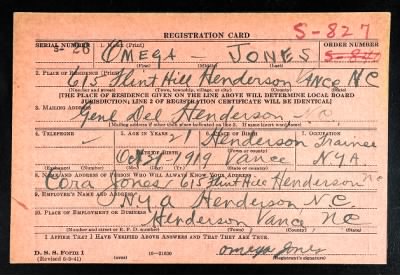 REGISTRATION CARD
S-827
SERIAL NUMBER 1. NAME (Print) ORDER NUMBER
OMEGA - JONES
(First) (Middle) (Last)
2. PLACE OF RESIDENCE (Print)
615 Flint Hill Henderson Vance N C
(Number and street) (Town, township, village, or city) (County) (State)
[THE PLACE OF RESIDENCE GIVEN ON THE LINE ABOVE WILL DETERMINE LOCAL BOARD
JURISDICTION; LINE 2 OF REGISTRATION CERTIFICATE WILL BE IDENTICAL]
3. MAILING ADDRESS
Gene Del Henderson N.C.
[Mailing address if other than place indicated on line 2. If same insert word same]
4. TELEPHONE 5. AGE IN YEARS 6. PLACE OF BIRTH 7. OCCUPATION
21 Henderson Trainee
DATE OF BIRTH
Oct 31 1919 Vance NYA
(Exchange) (Number) (Mo.) (Day) (Yr.) (State or country)
8. NAME AND ADDRESS OF PERSON WHO WILL ALWAYS KNOW YOUR ADDRESS
Cora Jones 615 Flint Hill Henderson NC
9. EMPLOYER'S NAME AND ADDRESS
NYA Henderson N.C.
10. PLACE OF EMPLOYMENT OR BUSINESS
Henderson Vance, NC
(Number and street or R. F. D. number) (Town) (County) (State)
I AFFIRM THAT I HAVE VERIFIED ABOVE ANSWERS AND THAT THEY ARE TRUE.
D. S. S. Form 1
16-21630
Omega Jones